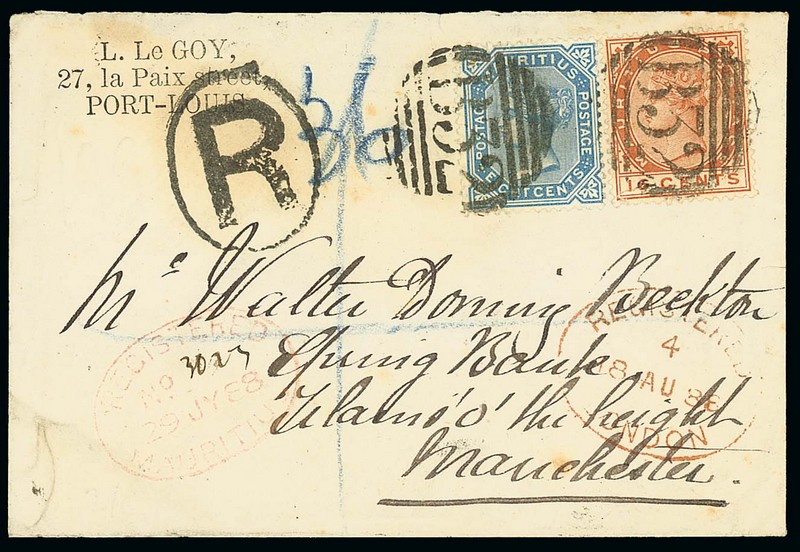 L. Le GOY,
27, la Paix street,
PORT-LOUIS.
R
MAURITIUS
POSTAGE POSTAGE
EIGHT CENTS
B53
MAURITIUS
16 CENTS
B53
Mr. Walter Beckton
Spring Bank
o' the height
Manchester.
REGISTERED
No 3023
29 JY 88
MAURITIUS
REGISTERED
4
18 AU 88
LONDON